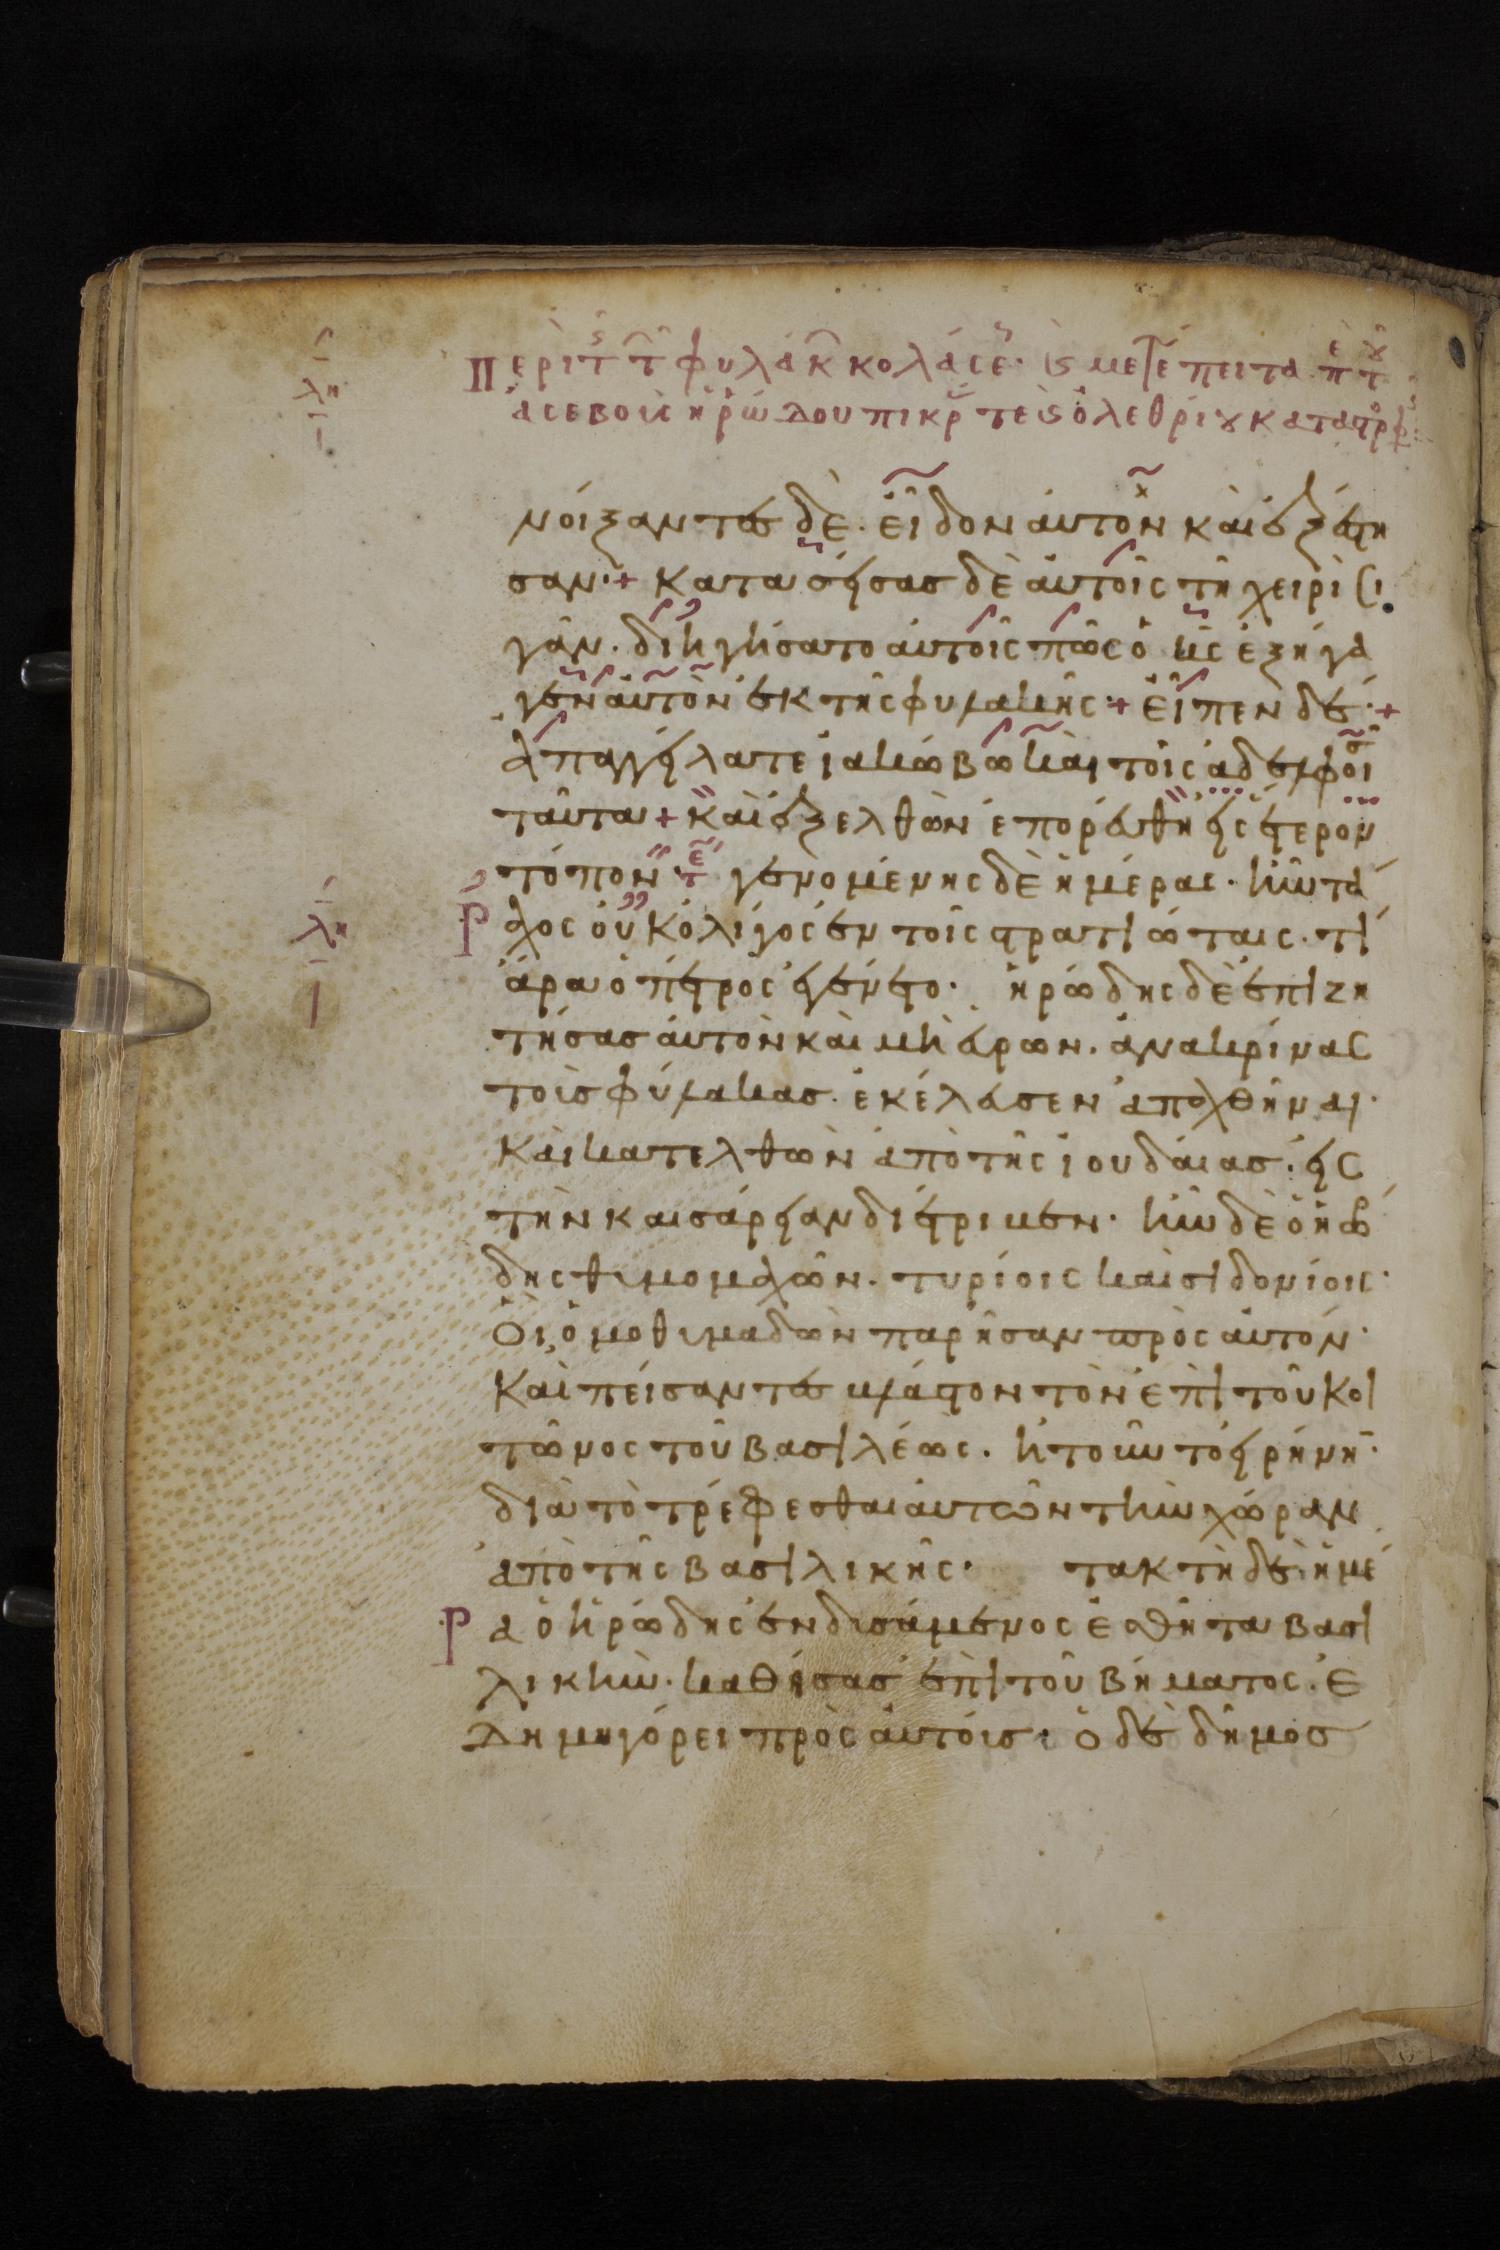 Περὶ τ τ φυλάκ κολάσε· ϗ μετέπειτα
ἀσεβοῦς ἡρώδου πικρ τε ϗ ὀλεθρίου καταστρφ
λη
νοίξαντες δὲ· εἶδον ἀυτὸν καὶ ἐξέστη
σαν·+ κατασείσας δὲ ἀυτοῖς τῆ χειρὶ σι
γᾶν· διηγήσατο ἀυτοῖς πῶς ὁ κς ἐξήγα
γεν ἀυτὸν ἐκ τῆς φυλακῆς·+ εἶπεν δέ·+
ἀπαγγείλατε ἰακώβω καὶ τοῖς ἀδελφοῖ
ταῦτα + καὶ ἐξελθὼν ἐπορεύθη εἰς ἕτερον
τόπον· τε γενομένης δὲ ἡμέρας· ἦν τά
λη
ραχος οὐκ ὀλίγος ἐν τοῖς στρατιώταις· τί
ἄρα ὁ πέτρος ἐγένετο· ἡρώδης δὲ ἐπιζη
τήσας ἀυτὸν καὶ μὴ εὑρων· ἀνακρίνας
τοὺς φύλακας· ἐκέλευσεν ἀπαχθῆναι·
καὶ κατελθὼν ἀπὸ τῆς ἰουδάιας· εἰς
τὴν καισάρειαν διέτριψεν· ἦν δὲ ὁ ἡρώ
δης θυμομαχῶν· τυρίοις καὶ σιδονίοις·
Οἱ ὁμοθυμαδὼν παρῆσαν πρὸς ἀυτόν·
Καὶ πείσαντες βλάστον τὸν ἐπὶ τοῦ κοι
τῶνος τοῦ βασιλέως· ἠτοῦντο εἰρήνη·
διὰ τὸ τρέφεσθαι ἀυτῶν τὴν χώραν
ἀπὸ τῆς βασιλικῆς· τακτὴ δὲ ἡμέ
ρα ὁ ἡρώδης ἐνδυσάμενος ἐσθῆτα βασι
λικὴν· καθήσας ἐπὶ τοῦ βήματος· ἐ
δημηγόρει πρὸς ἀυτόυς· ὁ δὲ δῆμος